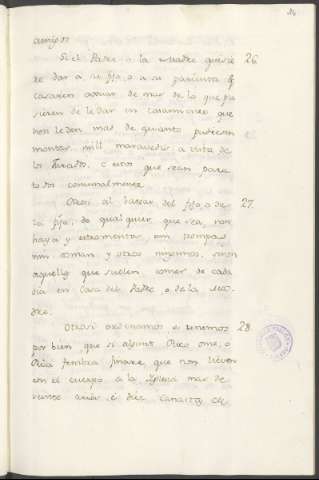 amigos.
Si el Padre o la Madre quisie 26
re dar a su fijo, o a su parienta q̃
casaren demas de lo que pu
sieren de le dar en casamiento que
non le den mas de quanto pudieren
montar mill maravedis a vista de
los Jurados, e estos que sean para
todos comunalmente.
Otrosi al baesar del fijo, o de 27.
la fija, de qualquier que sea, non
haya y estromentos, nin trompas
nin coman y otros ningunos, sinon
aquellos que suelen comer de cada
dia en Casa del Padre, o de la Ma-
dre.
Otrosi ordenamos e tenemos 28
por bien, que si algunt Rico ome, o
Rica fembra finare, que non lieven
con el cuerpo a la Iglesia mas de
veinte e diez